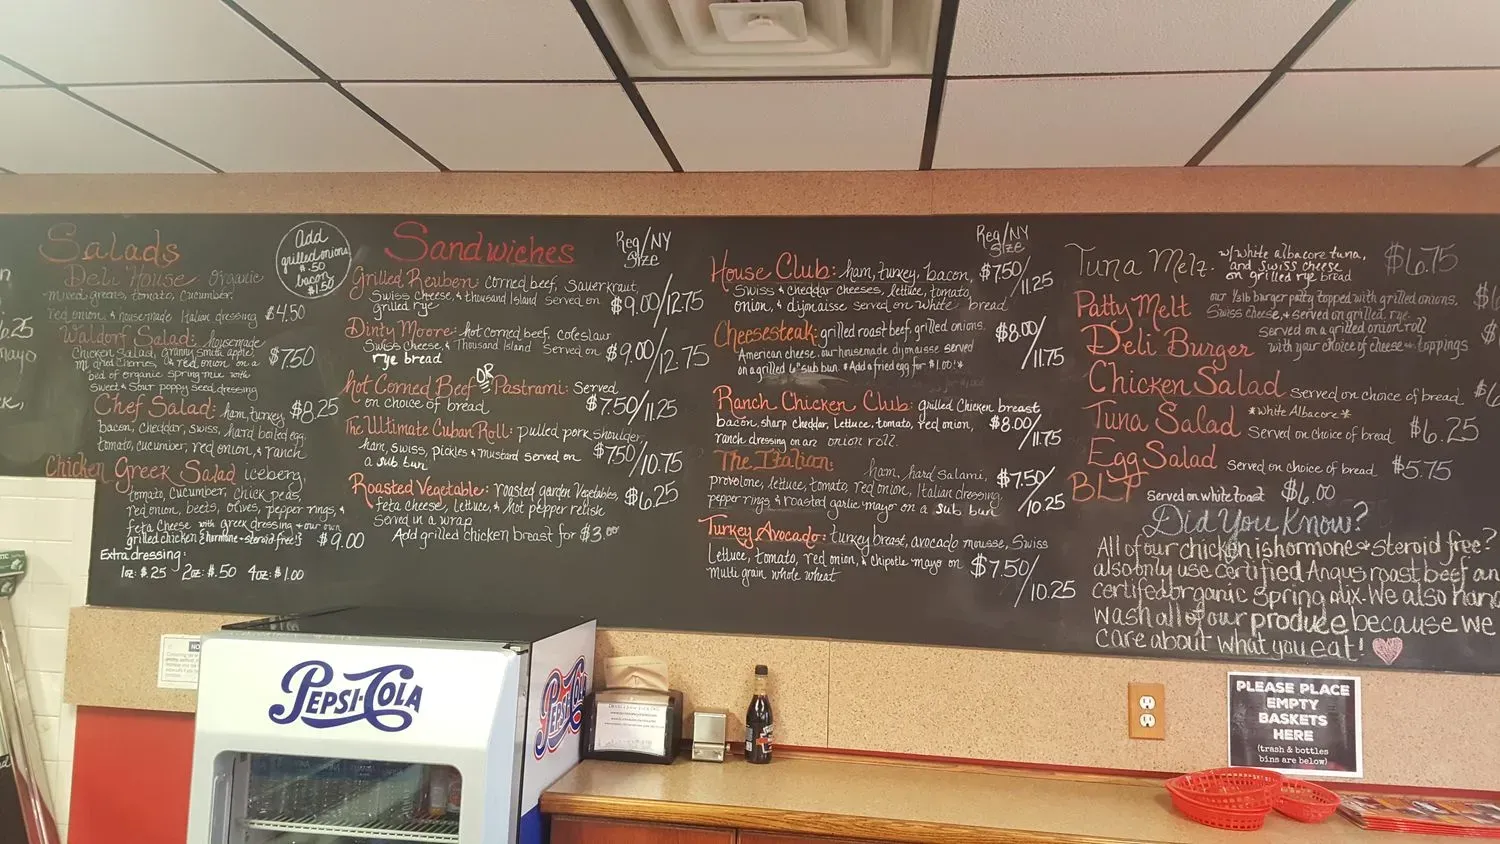 Salads
Add
grilled onions
$.50
bacon
$1.50
Deli House organic
mixed greens, tomato, cucumber,
red onion, & housemade Italian dressing $4.50
Waldorf Salad: housemade
Chicken Salad, granny smith apple,
cherries, & red onion on a $7.50
bed of organic spring mix with
sweet & sour poppy seed dressing
Chef Salad: ham, turkey, $8.25
bacon, cheddar, swiss, hard boiled egg,
tomato, cucumber, red onion, & ranch
Chicken Greek Salad iceberg,
tomato, cucumber, chick peas,
red onion, beets, olives, pepper rings, &
feta cheese with greek dressing & our own
grilled chicken {hormone & steroid free!} $9.00
Extra dressing:
1oz: $.25 2oz: $.50 4oz: $1.00
6.25
mayo
Sandwiches
Reg/NY
size
Grilled Reuben: corned beef, Sauerkraut,
Swiss cheese, & thousand Island served on $9.00/12.75
grilled rye
Dinty Moore: hot corned beef, coleslaw
Swiss Cheese, & Thousand Island Served on $9.00/12.75
rye bread
hot Corned Beef OR Pastrami: Served
on choice of bread $7.50/11.25
The Ultimate Cuban Roll: pulled pork shoulder,
ham, swiss, pickles & mustard served on $7.50/10.75
a sub bun
Roasted Vegetable: roasted garden vegetables, $6.25
feta cheese, lettuce, & hot pepper relish
Served in a wrap
Add grilled chicken breast for $3.00
Reg/NY
size
House Club: ham, turkey, bacon, $7.50/11.25
Swiss & cheddar cheeses, lettuce, tomato,
onion, & dijonaise served on white bread
Cheesesteak: grilled roast beef, grilled onions, $8.00/11.75
American cheese, our housemade dijonaisse served
on a grilled 6" sub bun *Add a fried egg for $1.00!*
Ranch Chicken Club: grilled Chicken breast
bacon, sharp cheddar, lettuce, tomato, red onion, $8.00/11.75
ranch dressing on an onion roll.
The Italian: ham, hard salami, $7.50/10.25
provolone, lettuce, tomato, red onion, Italian dressing,
pepper rings & roasted garlic mayo on a sub bun
Turkey Avocado: turkey breast, avocado mousse, Swiss
lettuce, tomato, red onion, & chipotle mayo on $7.50/10.25
multi grain whole wheat
Tuna Melt. w/white albacore tuna, $6.75
and swiss cheese
on grilled rye bread
Patty Melt our 1/3lb burger patty topped with grilled onions,
Swiss cheese, & served on grilled rye.
Deli Burger served on a grilled onion roll
with your choice of cheese & toppings
Chicken Salad served on choice of bread
Tuna Salad *White Albacore*
Served on choice of bread $6.25
Egg Salad served on choice of bread $5.75
BLT served on white toast $6.00
Did You Know?
All of our chicken is hormone & steroid free?
also only use certified Angus roast beef an
certifed organic spring mix. We also hand
wash all of our produce because we
care about what you eat!
PEPSI-COLA
PEPSI-COLA
PLEASE PLACE
EMPTY
BASKETS
HERE
(trash & bottles
bins are below)